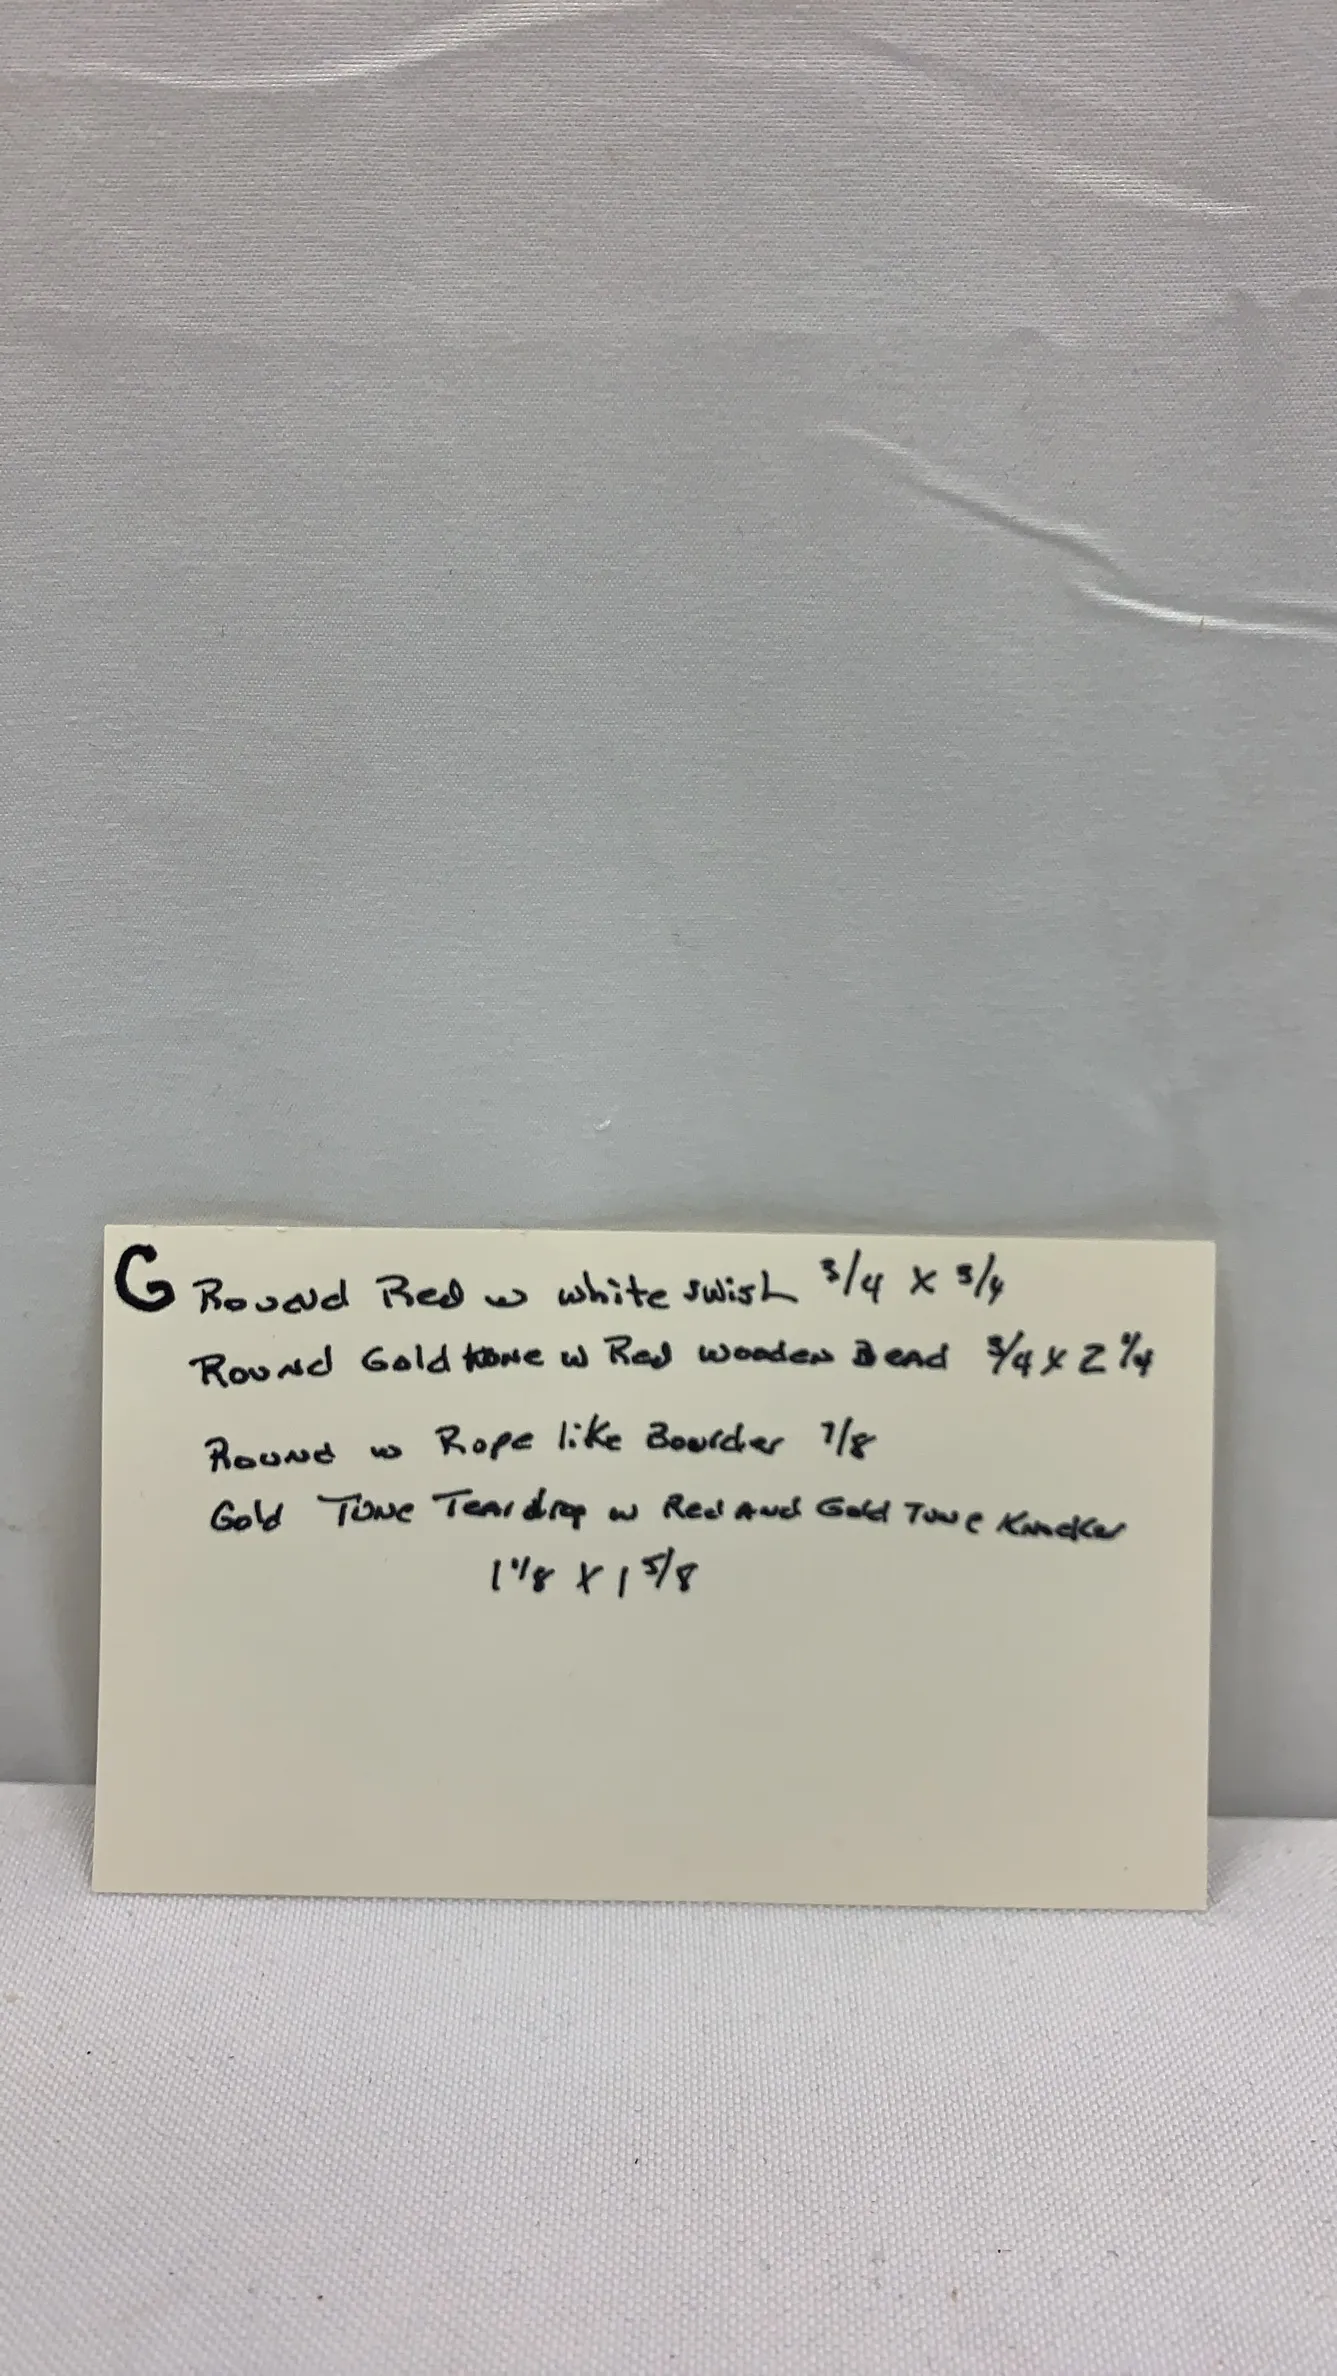 G Round Red w white swish 3/4 x 3/4
Round Gold tone w Red wooden Bead 3/4 x 2 1/4
Round w Rope like Bourder 7/8
Gold Tone Teardrop w Red And Gold Tone Knocker
1 1/8 x 1 5/8